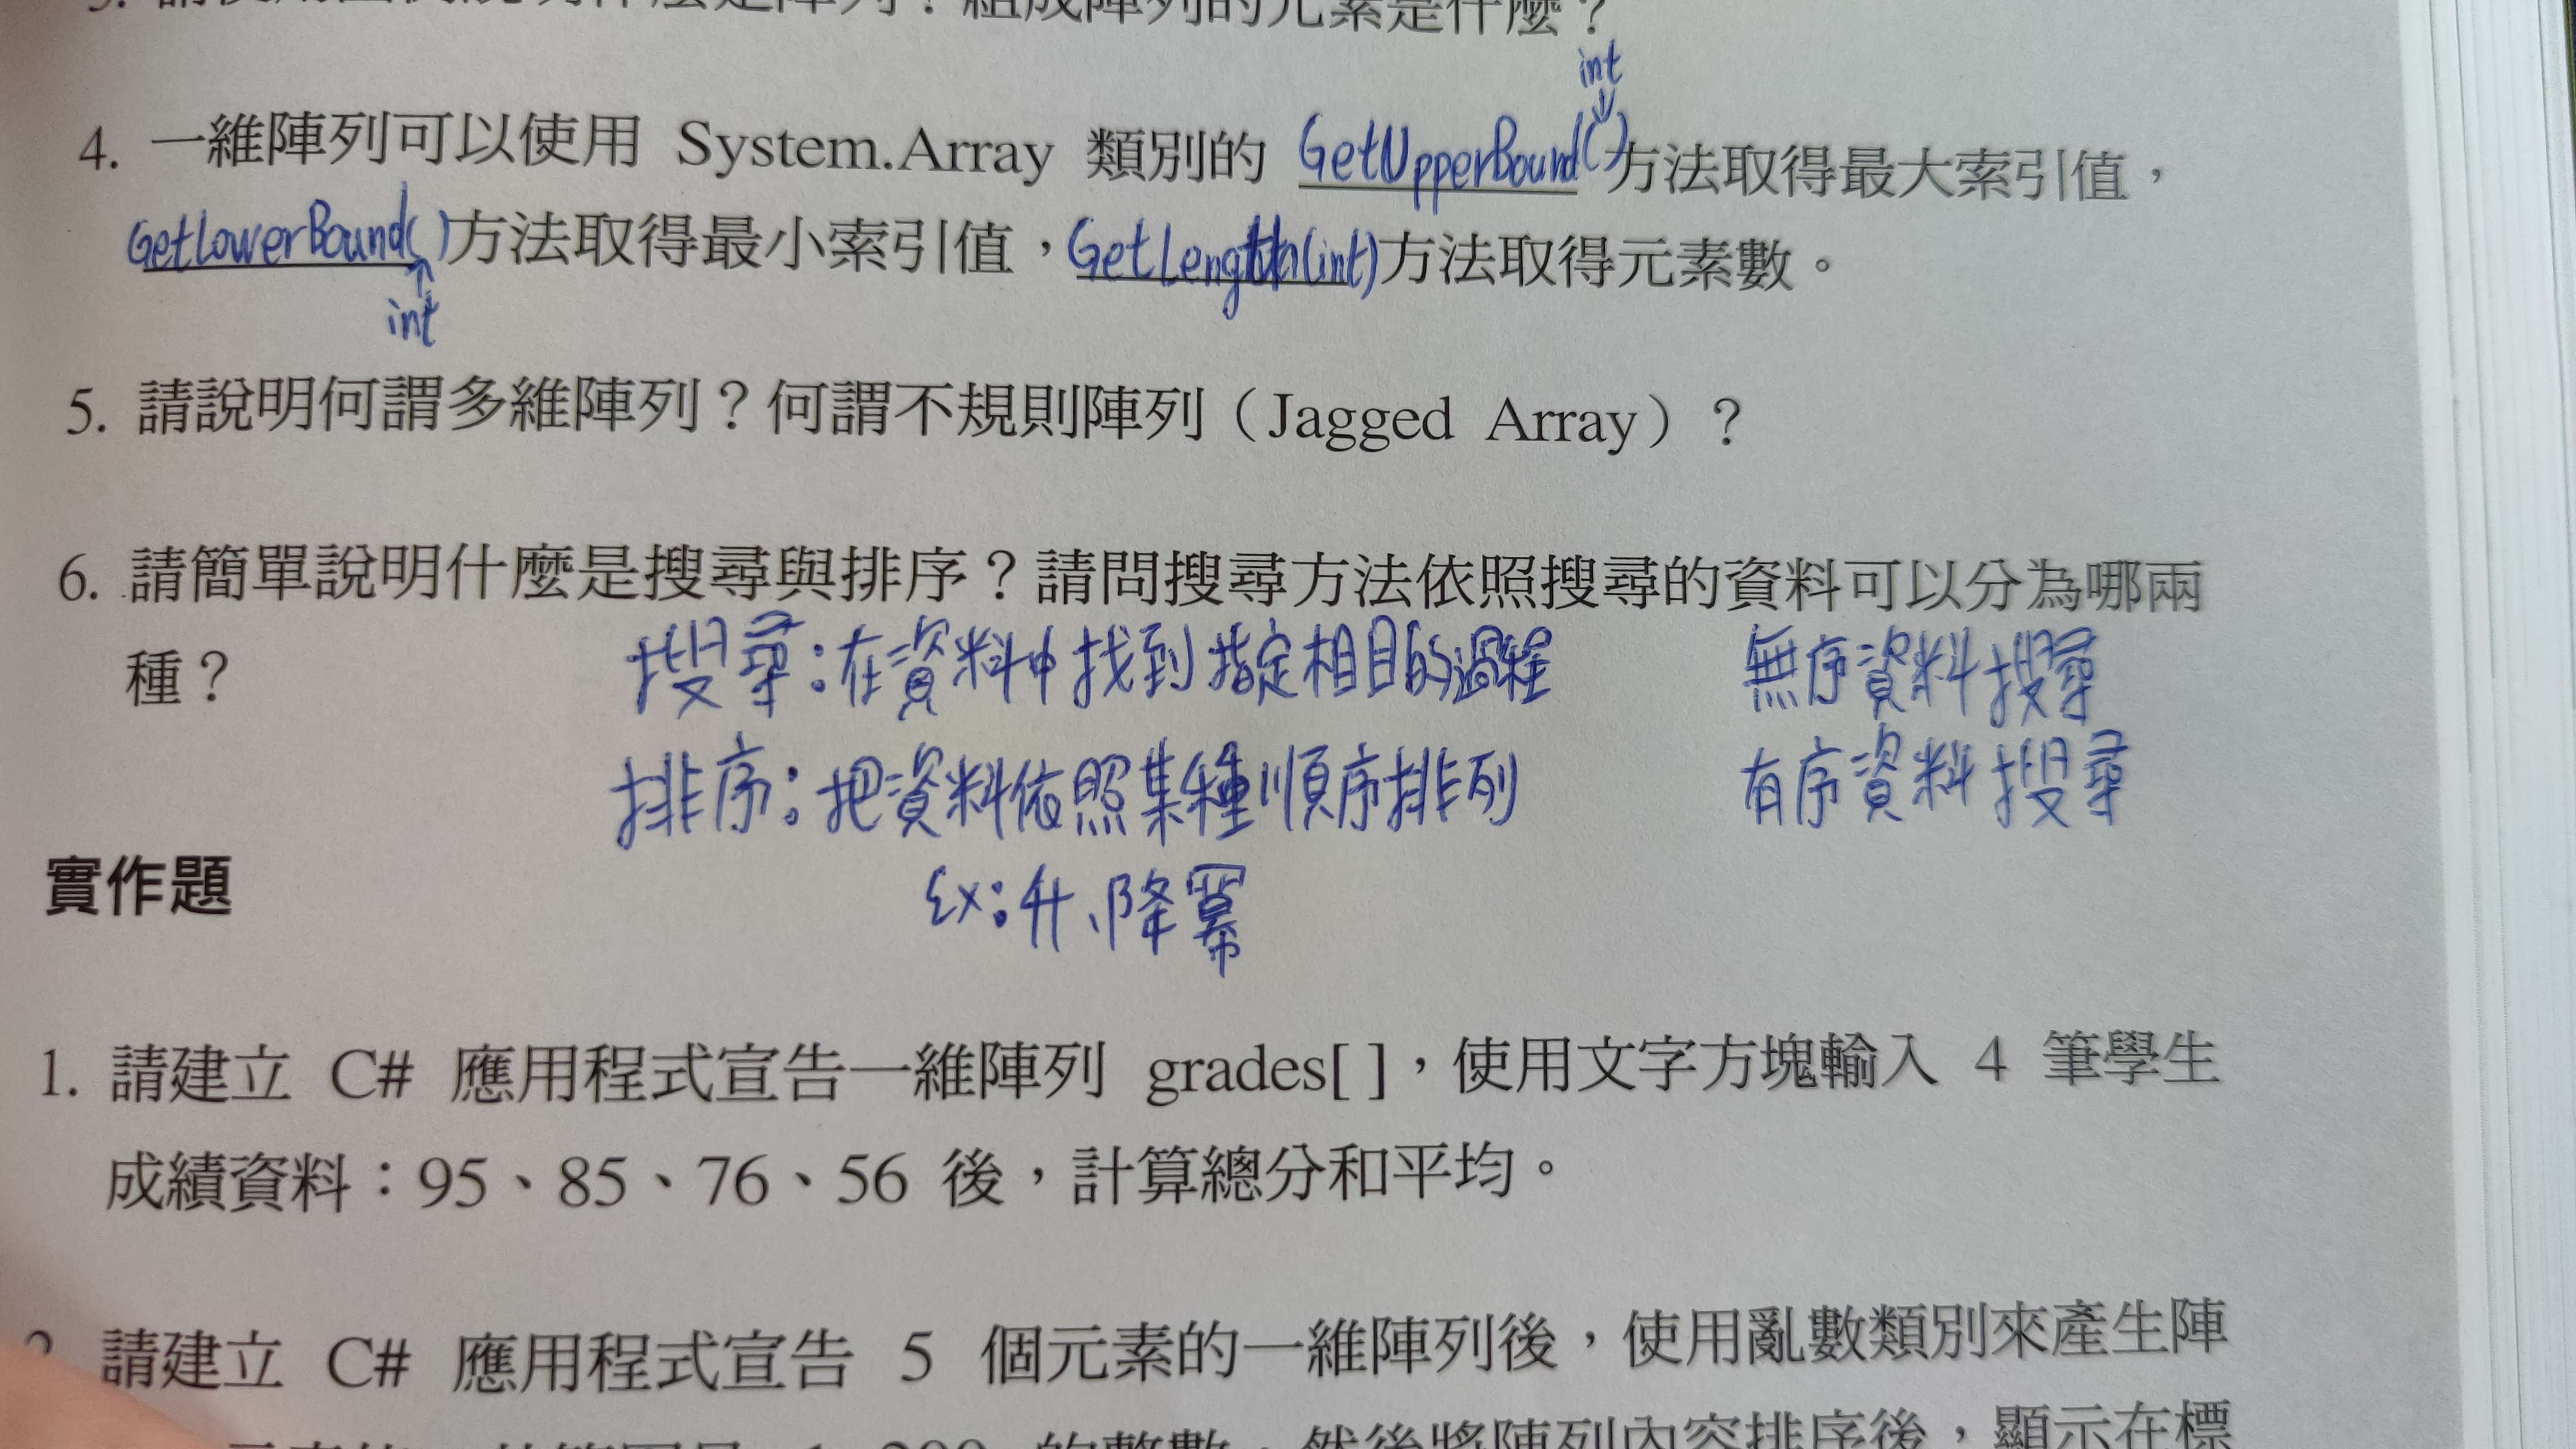 組成陣列的元素是什麼？
int
4. 一維陣列可以使用 System.Array 類別的 GetUpperBound()方法取得最大索引值，
GetLowerBound()方法取得最小索引值，GetLength(int)方法取得元素數。
int
5. 請說明何謂多維陣列？何謂不規則陣列（Jagged Array）？
6. 請簡單說明什麼是搜尋與排序？請問搜尋方法依照搜尋的資料可以分為哪兩
種？
搜尋：在資料中找到指定相目的過程 無序資料搜尋
排序：把資料依照某種順序排列 有序資料搜尋
Ex：升、降冪
實作題
1. 請建立 C# 應用程式宣告一維陣列 grades[ ]，使用文字方塊輸入 4 筆學生
成績資料：95、85、76、56 後，計算總分和平均。
請建立 C# 應用程式宣告 5 個元素的一維陣列後，使用亂數類別來產生陣
的整數，然後將陣列內容排序後，顯示在標